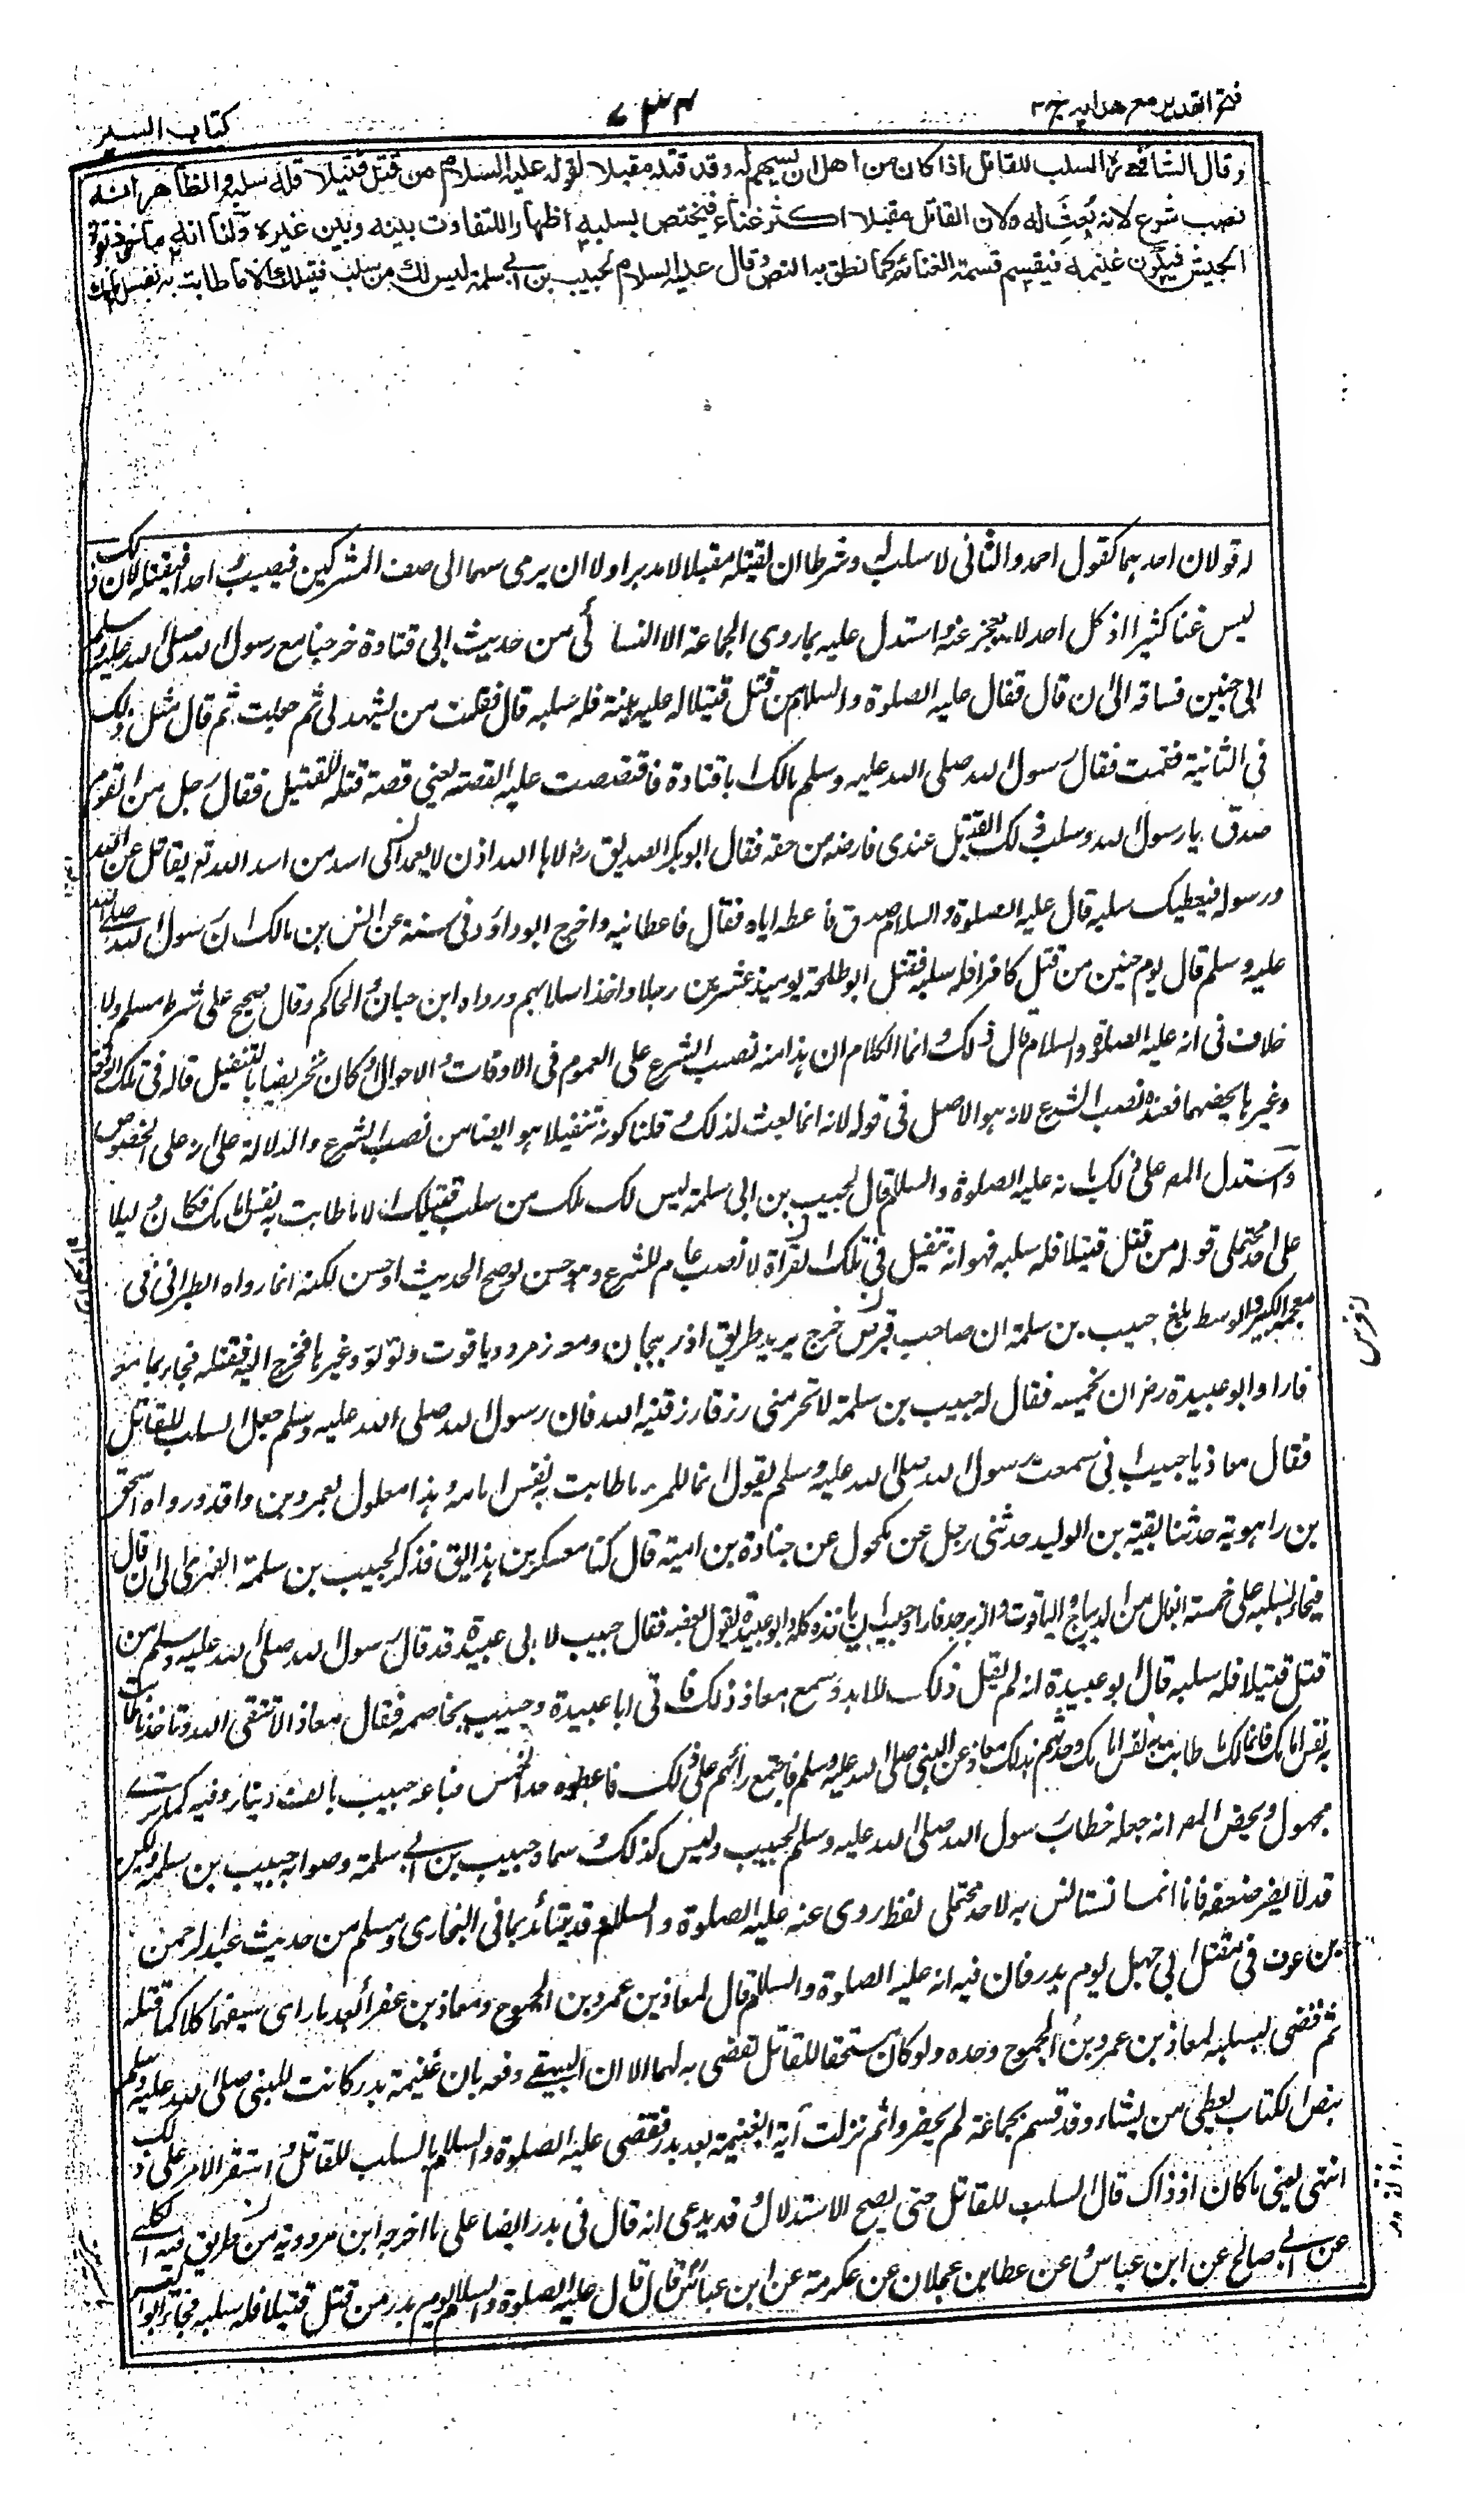 فتح القدير مع هدايه ج ٢
٧٣٤
كتاب السير
وقال الشافعي رح السلب للقاتل اذا كان من اهل ان يسهم له وقد قتله مقبلا لقوله عليه السلام من قتل قتيلا فله سلبه والظاهر انه
نصب شرع لانه بُعِثَ له ولان القاتل مقبلا اكثر غناء فيختص بسلبه اظهارا للتفاوت بينه وبين غيره ولنا انه ماخوذ بقوة
الجيش فيكون غنيمة فيقسم قسمة الغنائم كما نطق به النص وقال عليه السلام لحبيب بن ابي سلمة ليس لك من سلب قتيلك الا ما طابت به نفس امامك
له قولان احدهما كقول احمد والثاني لا سلب له وشرطا ان يقتله مقبلا لا مدبرا ولا ان يرمى سهما الى صف المشركين فيصيب احدا فيقتله لان ذلك
ليس غنا كثيرا اذ كل احد لا يعجز عنه واستدل عليه بما روى الجماعة الا النسائى من حديث ابى قتادة خرجنا مع رسول الله صلى الله عليه وسلم
الى حنين فساقه الى ان قال فقال عليه الصلوة والسلام من قتل قتيلا له عليه بينة فله سلبه قال فقلت من يشهد لى ثم جلست ثم قال مثل ذلك
فى الثانية فقمت فقال رسول الله صلى الله عليه وسلم مالك ابا قتادة فاقتصصت عليه القصة يعنى قصة قتله للقتيل فقال رجل من القوم
صدق يا رسول الله وسلب ذلك القتيل عندى فارضه من حقه فقال ابو بكر الصديق رض لا ها الله اذن لا يعمد الى اسد من اسد الله تع يقاتل عن الله
ورسوله فيعطيك سلبه قال عليه الصلوة والسلام صدق فاعطه اياه فقال فاعطانيه واخرج ابو داؤد فى سننه عن انس بن مالك ان رسول الله صلى الله
عليه وسلم قال يوم حنين من قتل كافرا فله سلبه فقتل ابو طلحة يومئذ عشرين رجلا واخذ اسلابهم ورواه ابن حبان والحاكم وقال صحيح على شرط مسلم ولا
خلاف فى انه عليه الصلوة والسلام قال ذلك وانما الكلام ان هذا منه نصب الشرع على العموم فى الاوقات والاحوال او كان تحريضا بالتنفيل قاله فى تلك الوقعة
وغيرها يخصهما فعنده نصب الشرع لانه هو الاصل فى قوله لانه انما بعث لذلك وقلنا كونه تنفيلا هو ايضا من نصب الشرع والدلالة على انه على الخصوص
واستدل المصر على ذلك بانه عليه الصلوة والسلام قال لحبيب بن ابى سلمة ليس لك من سلب قتيلك الا ما طابت به نفس امامك فكان دليلا
على احد محتملى قوله من قتل قتيلا فله سلبه فهو انه تنفيل فى تلك الغزاة لا نصب عام للشرع وهو حسن لو صح الحديث او حسن لكنه انما رواه الطبرانى فى
معجمه الكبير والوسط بلغ حبيب بن سلمة ان صاحب قبرس خرج يريد طريق اذربيجان ومعه زمرد وياقوت ولؤلؤ وغيرها فخرج اليه فقتله فجاء بما معه
فاراد ابو عبيدة رض ان يخمسه فقال له حبيب بن سلمة لا تحرمنى رزقا رزقنيه الله فان رسول الله صلى الله عليه وسلم جعل السلب للقاتل
فقال معاذ يا حبيب انى سمعت رسول الله صلى الله عليه وسلم يقول انما للمرء ما طابت به نفس امامه وهذا معلول بعمرو بن واقد ورواه اسحق
بن راهويه حدثنا بقية بن الوليد حدثنى رجل عن مكحول عن جنادة بن امية قال كنا معسكرين بدابق فذكر لحبيب بن سلمة الفهرى الى ان قال
فجاء بسلبه على خمسة ابغال من الديباج والياقوت والزبرجد فاراد حبيب ان ياخذه كله وابو عبيدة يقول بعضه فقال حبيب لابى عبيدة قد قال رسول الله صلى الله عليه وسلم من
قتل قتيلا فله سلبه قال ابو عبيدة انه لم يقل ذلك للابد وسمع معاذ ذلك فاتى ابا عبيدة وحبيب يخاصمه فقال معاذ الا تتقى الله وتاخذ ما طابت
به نفس امامك فانما لك ما طابت به نفس امامك وحدثهم بذلك معاذ عن النبى صلى الله عليه وسلم فاجتمع رائهم على ذلك فاعطوه بعد الخمس فباعه حبيب بالف دينار وفيه كما ترى
مجهول ويخص المصر انه جعله خطاب رسول الله صلى الله عليه وسلم لحبيب وليس كذلك وسماه حبيب بن ابى سلمة وصوابه حبيب بن سلمة ولكن
قد لا يضر ضعفه فانا انما نستانس به لاحد محتملى لفظ روى عنه عليه الصلوة والسلام وقد يتأيد بما فى البخارى ومسلم من حديث عبد الرحمن
بن عوف فى مقتل ابى جهل يوم بدر فان فيه انه عليه الصلوة والسلام قال لمعاذ بن عمرو بن الجموح ومعاذ بن عفراء بعد ما راى سيفهما كلاكما قتله
ثم قضى بسلبه لمعاذ بن عمرو بن الجموح وحده ولو كان مستحقا للقاتل لقضى به لهما الا ان البيهقى دفعه بان غنيمة بدر كانت للنبى صلى الله عليه وسلم
بنص الكتاب يعطى من يشاء وقد قسم لجماعة لم يحضروا ثم نزلت آية الغنيمة بعد بدر فقضى عليه الصلوة والسلام بالسلب للقاتل واستقر الامر على ذلك
انتهى يعنى ما كان اذ ذاك قال السلب للقاتل حتى يصح الاستدلال وقد يدعى انه قال فى بدر ايضا على ما اخرجه ابن مردويه من طريق فيه الكلبى
عن ابى صالح عن ابن عباس وعن عطا بن عجلان عن عكرمة عن ابن عباس قال قال عليه الصلوة والسلام يوم بدر من قتل قتيلا فله سلبه فجاء ابو اليسر